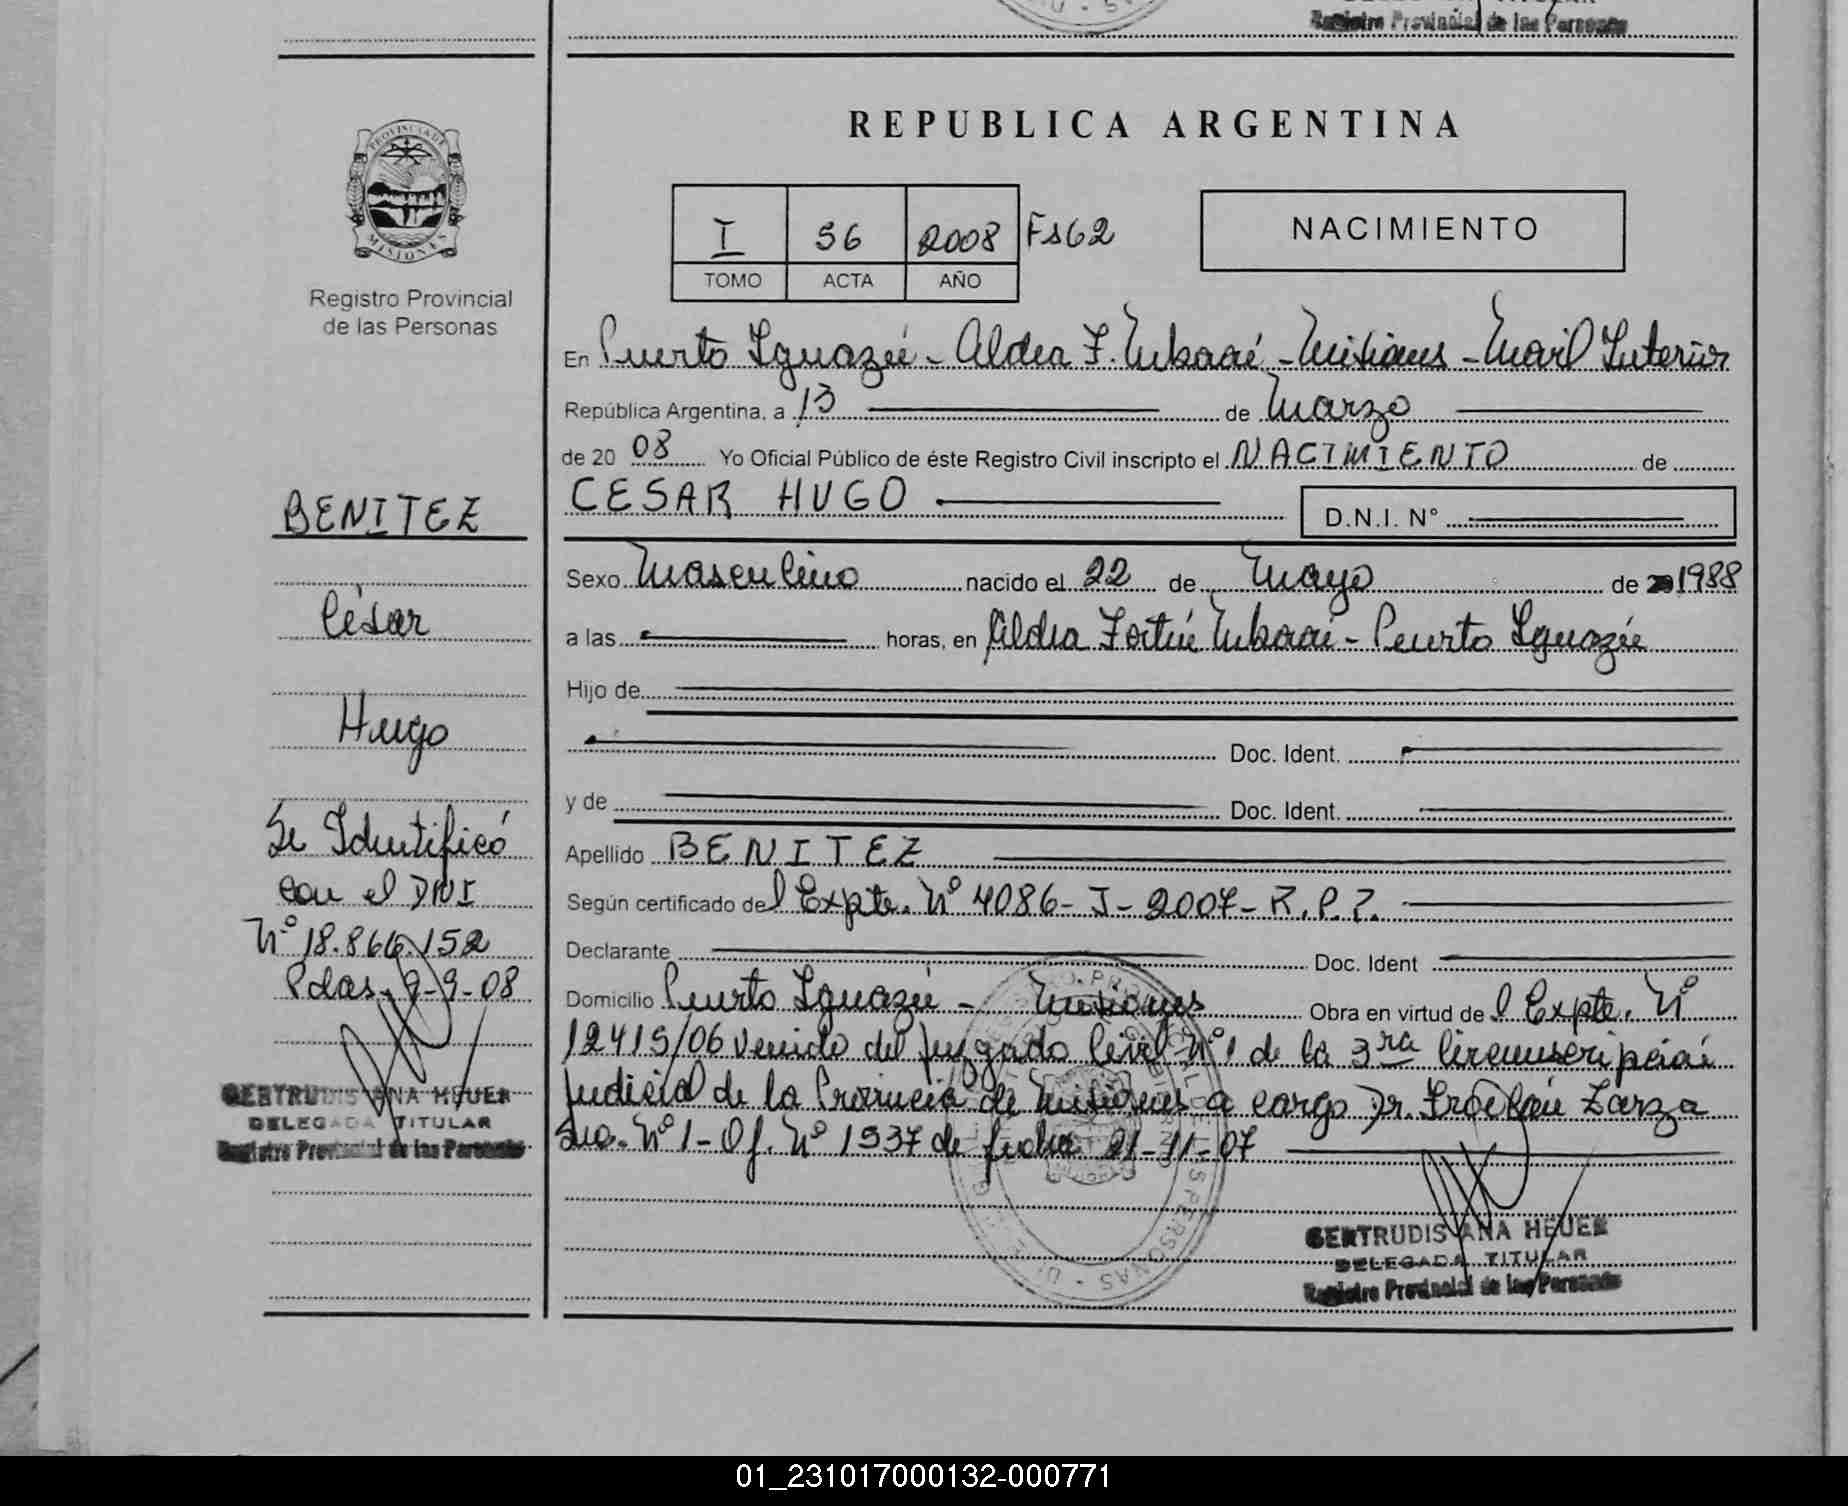 Registro Provincial de las Personas
REPUBLICA ARGENTINA
PROVINCIA DE
MISIONES
Registro Provincial
de las Personas
I 56 2008 Fs 62
TOMO ACTA AÑO
NACIMIENTO
En Puerto Iguazú - Aldea F. Mbororé - Misiones - Móvil Interior
República Argentina, a 13 de Marzo
de 20 08 Yo Oficial Público de éste Registro Civil inscripto el NACIMIENTO de
CESAR HUGO D.N.I. N°
Sexo Masculino nacido el 22 de Mayo de 1988
a las horas, en Aldea Fortín Mbororé - Puerto Iguazú
Hijo de
Doc. Ident.
y de Doc. Ident.
Apellido BENITEZ
Según certificado del Expte. N° 4086 - J - 2007 - R.P.P.
Declarante Doc. Ident
Domicilio Puerto Iguazú - Misiones Obra en virtud del Expte. N°
12415/06 venido del Juzgado Civil N° 1 de la 3ra Circunscripción
Judicial de la Provincia de Misiones a cargo Dr. Froilán Zarza
Sec. N° 1 - Of. N° 1537 de fecha 21-11-07
GERTRUDIS ANA HEUER
DELEGADA TITULAR
Registro Provincial de las Personas
BENITEZ
César
Hugo
Se Identificó
con el DNI
N° 18.866.152
Pdas. 9-9-08
GERTRUDIS ANA HEUER
DELEGADA TITULAR
Registro Provincial de las Personas
01_231017000132-000771